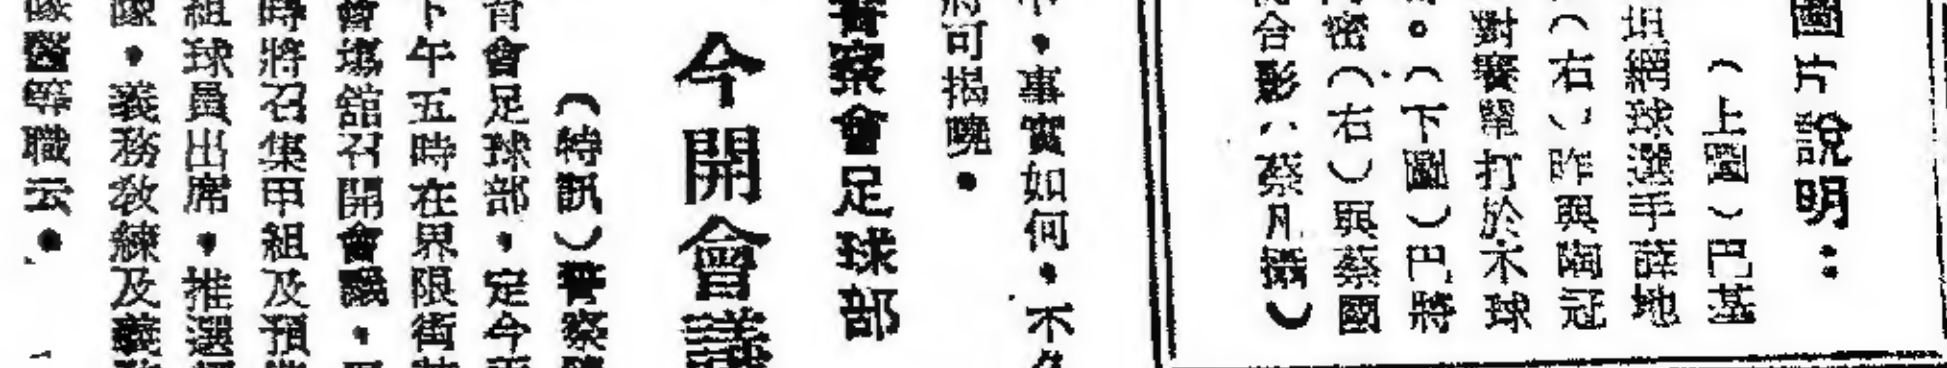 圖片說明：
（上圖）巴基
坦網球選手薛地
（右）昨與陶冠
對賽單打於木球
。（下圖）巴將
密（右）與蔡國
合影、（蔡凡攝）
・事實如何・不
將可揭曉・
警察會足球部
今開會議
（特訊）警察
育會足球部・定今
下午五時在界限街
會場舘召開會議・
時將召集甲組及預
組球員出席・推選
隊・義務教練及義務
隊醫等職云・